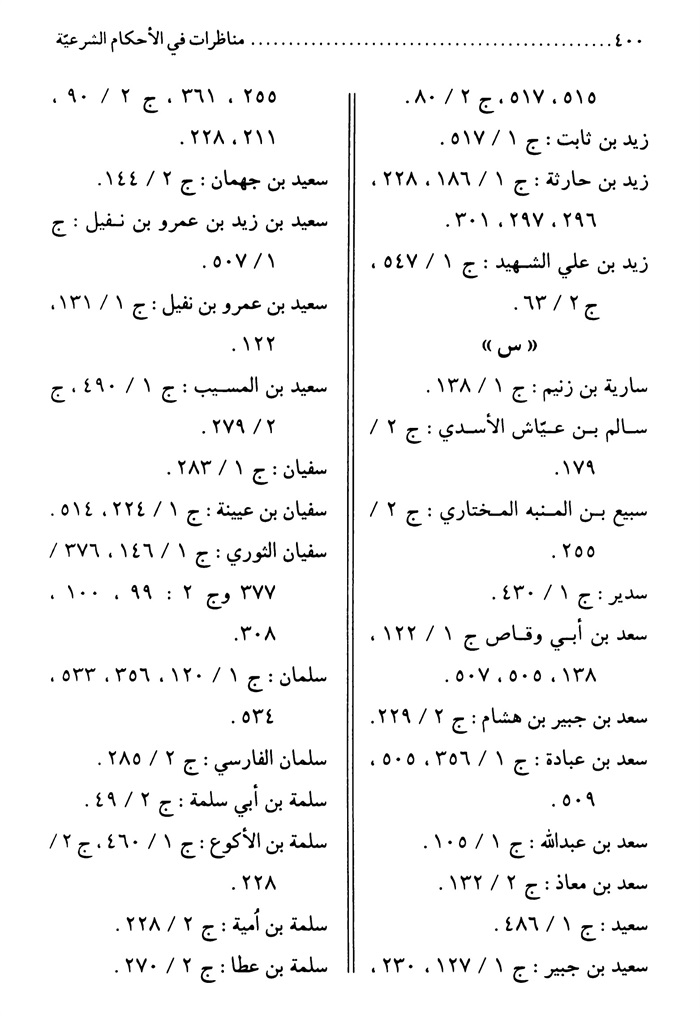 ٤٠٠ ................................................ مناظرات في الأحكام الشرعيّة
٥١٥ ، ٥١٧ ، ج ٢ / ٨٠ .
زيد بن ثابت : ج ١ / ٥١٧ .
زيد بن حارثة : ج ١ / ١٨٦ ، ٢٢٨ ،
٢٩٦ ، ٢٩٧ ، ٣٠١ .
زيد بن علي الشهيد : ج ١ / ٥٤٧ ،
ج ٢ / ٦٣ .
« س »
سارية بن زنيم : ج ١ / ١٣٨ .
سالم بن عيّاش الأسدي : ج ٢ /
١٧٩ .
سبيع بن المنبه المختاري : ج ٢ /
٢٥٥ .
سدير : ج ١ / ٤٣٠ .
سعد بن أبي وقاص ج ١ / ١٢٢ ،
١٣٨ ، ٥٠٥ ، ٥٠٧ .
سعد بن جبير بن هشام : ج ٢ / ٢٢٩ .
سعد بن عبادة : ج ١ / ٣٥٦ ، ٥٠٥ ،
٥٠٩ .
سعد بن عبدالله : ج ١ / ١٠٥ .
سعد بن معاذ : ج ٢ / ١٣٢ .
سعيد : ج ١ / ٤٨٦ .
سعيد بن جبير : ج ١ / ١٢٧ ، ٢٣٠ ،
٢٥٥ ، ٣٦١ ، ج ٢ / ٩٠ ،
٢١١ ، ٢٢٨ .
سعيد بن جهمان : ج ٢ / ١٤٤ .
سعيد بن زيد بن عمرو بن نفيل : ج
١ / ٥٠٧ .
سعيد بن عمرو بن نفيل : ج ١ / ١٣١ ،
١٢٢ .
سعيد بن المسيب : ج ١ / ٤٩٠ ، ج
٢ / ٢٧٩ .
سفيان : ج ١ / ٢٨٣ .
سفيان بن عيينة : ج ١ / ٢٢٤ ، ٥١٤ .
سفيان الثوري : ج ١ / ١٤٦ ، ٣٧٦ /
٣٧٧ وج ٢ : ٩٩ ، ١٠٠ ،
٣٠٨ .
سلمان : ج ١ / ١٢٠ ، ٣٥٦ ، ٥٣٣ ،
٥٣٤ .
سلمان الفارسي : ج ٢ / ٢٨٥ .
سلمة بن أبي سلمة : ج ٢ / ٤٩ .
سلمة بن الأكوع : ج ١ / ٤٦٠ ، ج ٢ /
٢٢٨ .
سلمة بن اُمية : ج ٢ / ٢٢٨ .
سلمة بن عطا : ج ٢ / ٢٧٠ .